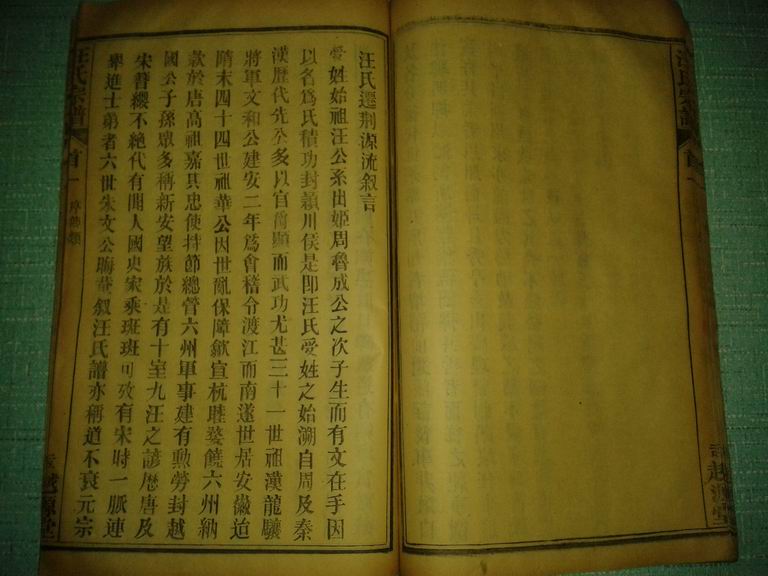 汪氏遷荆源流叙言
受姓始祖汪公系出姬周魯成公之次子生而有文在手因
以名爲氏積功封潁川侯是卽汪氏受姓之始溯自周及秦
漢歷代先公多以官爵顯而武功尤甚三十一世祖漢龍驤
將軍文和公建安二年爲會稽令渡江而南遂世居安徽迨
隋末四十四世祖華公因世亂保障歙宣杭睦婺饒六州納
款於唐高祖嘉其忠使持節總管六州軍事建有勲勞封越
國公子孫眾多稱新安望族於是有十室九汪之諺歷唐及
宋簪纓不絕代有聞人國史家乘班班可攷有宋時一脈連
舉進士弟者六世朱文公晦菴叙汪氏譜亦稱道不衰元宗
汪氏宗譜
首一
越源堂
汪氏宗譜
首一
越源堂